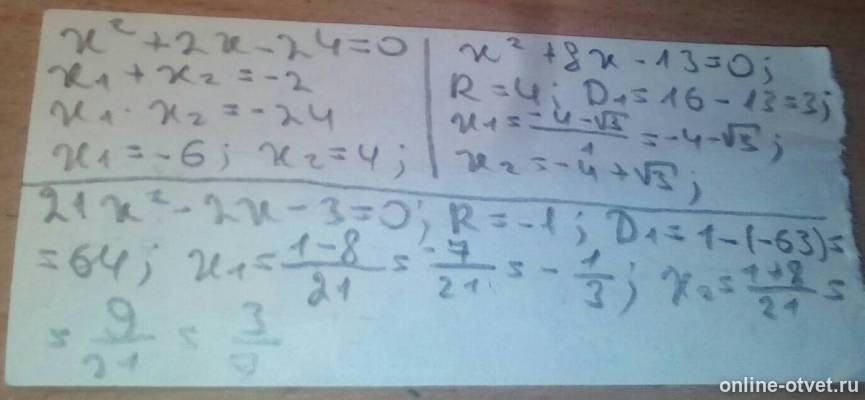 x² + 2x - 24 = 0
x₁ + x₂ = -2
x₁ · x₂ = -24
x₁ = -6; x₂ = 4;
x² + 8x - 13 = 0;
R = 4; D₁ = 16 - 13 = 3;
x₁ = (-4 - √3)/1 = -4 - √3;
x₂ = -4 + √3;
21x² - 2x - 3 = 0; R = -1; D₁ = 1 - (-63) =
= 64; x₁ = (1 - 8)/21 = -7/21 = -1/3; x₂ = (1 + 8)/21 =
= 9/21 = 3/7
online-otvet.ru